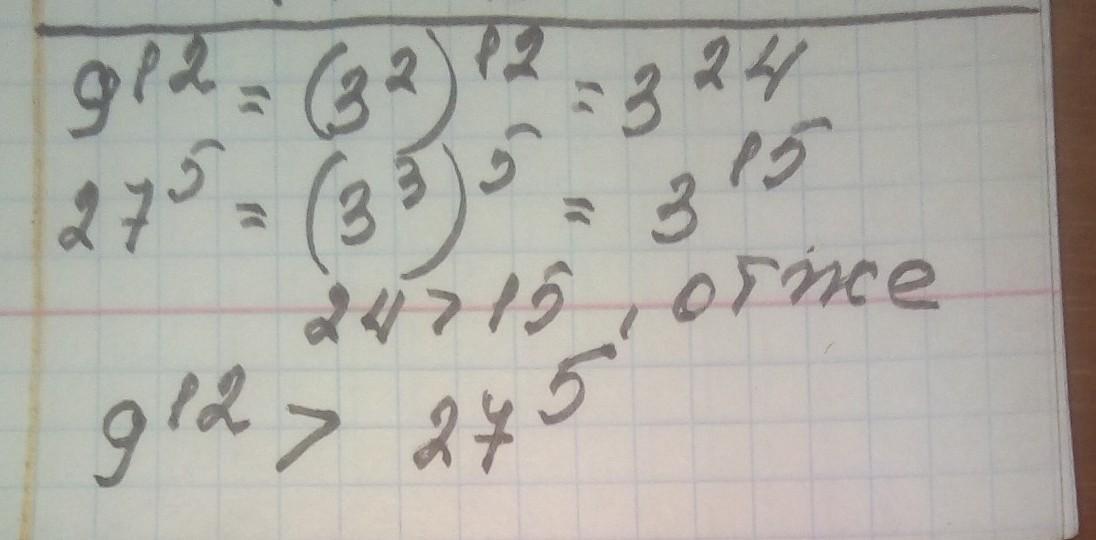 9¹² = (3²)¹² = 3²⁴
27⁵ = (3³)⁵ = 3¹⁵
24 > 15, отже
9¹² > 27⁵